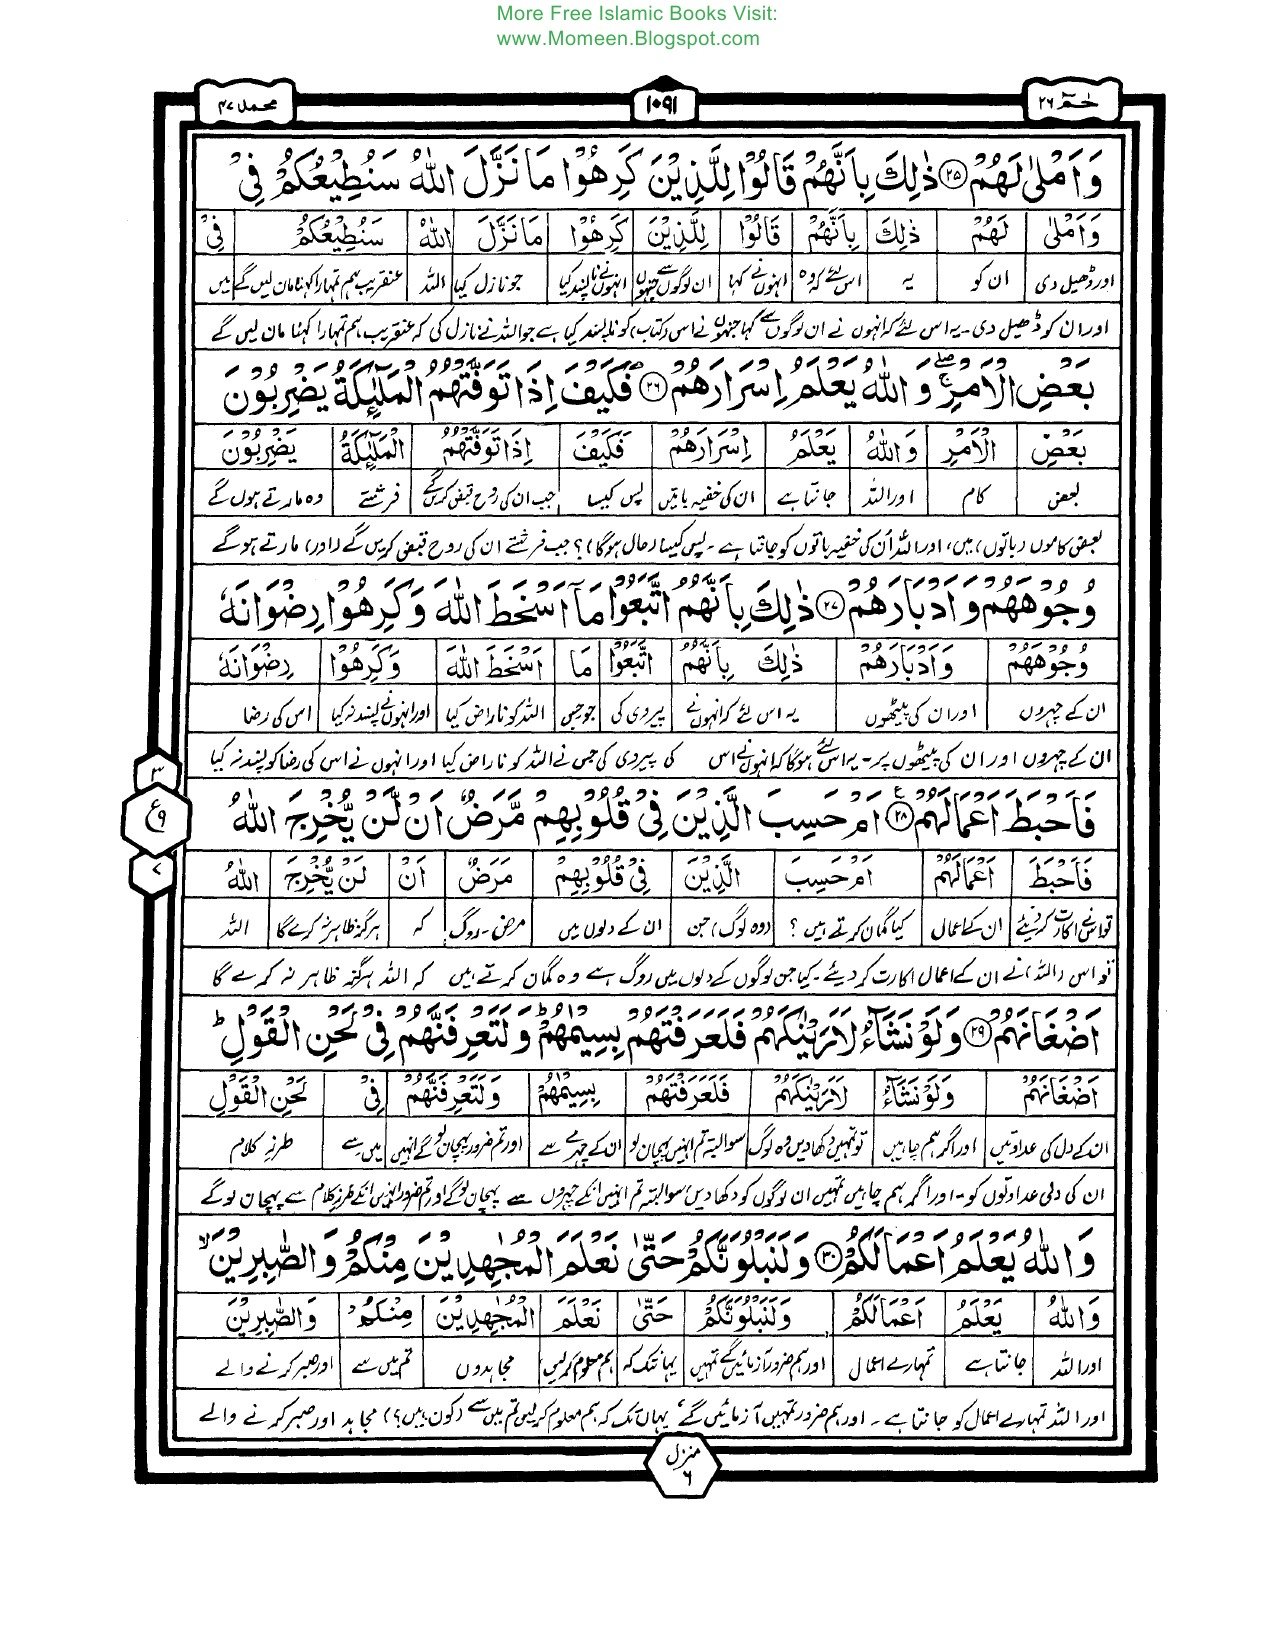 More Free Islamic Books Visit:
www.Momeen.Blogspot.com
حٰمٓ ٢٦
١٠٩١
محمد ٤٧
وَاَمْلٰى لَهُمْ ﴿٢٥﴾ ذٰلِكَ بِاَنَّهُمْ قَالُوْا لِلَّذِيْنَ كَرِهُوْا مَا نَزَّلَ اللّٰهُ سَنُطِيْعُكُمْ فِيْ
وَاَمْلٰى لَهُمْ ذٰلِكَ بِاَنَّهُمْ قَالُوْا لِلَّذِيْنَ كَرِهُوْا مَا نَزَّلَ اللّٰهُ سَنُطِيْعُكُمْ فِيْ
اور ڈھیل دی ان کو یہ اس لئے کہ وہ انہوں نے کہا ان لوگوں سے جنہوں انہوں نے ناپسند کیا جو نازل کیا اللہ عنقریب ہم تمہارا کہنا مان لیں گے میں
اور ان کو ڈھیل دی۔ یہ اس لئے کہ انہوں نے ان لوگوں سے کہا جنہوں نے اس (کتاب) کو ناپسند کیا ہے جو اللہ نے نازل کی کہ عنقریب ہم تمہارا کہنا مان لیں گے
بَعْضِ الْاَمْرِ ۚ وَاللّٰهُ يَعْلَمُ اِسْرَارَهُمْ ﴿٢٦﴾ فَكَيْفَ اِذَا تَوَفَّتْهُمُ الْمَلٰٓئِكَةُ يَضْرِبُوْنَ
بَعْضِ الْاَمْرِ وَاللّٰهُ يَعْلَمُ اِسْرَارَهُمْ فَكَيْفَ اِذَا تَوَفَّتْهُمُ الْمَلٰٓئِكَةُ يَضْرِبُوْنَ
بعض کام اور اللہ جانتا ہے ان کی خفیہ باتیں پس کیسا جب ان کی روح قبض کریں گے فرشتے وہ مارتے ہوں گے
بعض کاموں (باتوں) میں، اور اللہ اُن کی خفیہ باتوں کو جانتا ہے۔ پس کیسا (حال ہوگا)؟ جب فرشتے ان کی روح قبض کریں گے (اور) مارتے ہوگے
وُجُوْهَهُمْ وَاَدْبَارَهُمْ ﴿٢٧﴾ ذٰلِكَ بِاَنَّهُمُ اتَّبَعُوْا مَآ اَسْخَطَ اللّٰهَ وَكَرِهُوْا رِضْوَانَهٗ
وُجُوْهَهُمْ وَاَدْبَارَهُمْ ذٰلِكَ بِاَنَّهُمُ اتَّبَعُوْا مَآ اَسْخَطَ اللّٰهَ وَكَرِهُوْا رِضْوَانَهٗ
ان کے چہروں اور ان کی پیٹھوں یہ اس لئے کہ انہوں نے پیروی کی جو جس اللہ کو ناراض کیا اور انہوں نے پسند نہ کیا اس کی رضا
ان کے چہروں اور ان کی پیٹھوں پر۔ یہ اس لئے ہوگا کہ انہوں نے اس کی پیروی کی جس نے اللہ کو ناراض کیا اور انہوں نے اس کی رضا کو پسند نہ کیا
٣
ع
٩
٧
فَاَحْبَطَ اَعْمَالَهُمْ ﴿٢٨﴾ اَمْ حَسِبَ الَّذِيْنَ فِيْ قُلُوْبِهِمْ مَّرَضٌ اَنْ لَّنْ يُّخْرِجَ اللّٰهُ
فَاَحْبَطَ اَعْمَالَهُمْ اَمْ حَسِبَ الَّذِيْنَ فِيْ قُلُوْبِهِمْ مَرَضٌ اَنْ لَنْ يُّخْرِجَ اللّٰهُ
تو اس نے اکارت کر دیئے ان کے اعمال کیا گمان کرتے ہیں؟ (وہ لوگ) جن ان کے دلوں میں مرض۔ روگ کہ ہرگز ظاہر نہ کرے گا اللہ
تو اس (اللہ) نے ان کے اعمال اکارت کر دیئے۔ کیا جن لوگوں کے دلوں میں روگ ہے وہ گمان کرتے ہیں کہ اللہ ہرگز ظاہر نہ کرے گا
اَضْغَانَهُمْ ﴿٢٩﴾ وَلَوْ نَشَآءُ لَاَرَيْنٰكَهُمْ فَلَعَرَفْتَهُمْ بِسِيْمٰهُمْ ۗ وَلَتَعْرِفَنَّهُمْ فِيْ لَحْنِ الْقَوْلِ ۗ
اَضْغَانَهُمْ وَلَوْ نَشَآءُ لَاَرَيْنٰكَهُمْ فَلَعَرَفْتَهُمْ بِسِيْمٰهُمْ وَلَتَعْرِفَنَّهُمْ فِيْ لَحْنِ الْقَوْلِ
ان کے دل کی عداوتیں اور اگر ہم چاہیں تو تمہیں دکھا دیں وہ لوگ سو البتہ تم انہیں پہچان لو ان کے چہرے سے اور تم ضرور پہچان لو گے انہیں میں سے طرزِ کلام
ان کی دلی عداوتوں کو۔ اور اگر ہم چاہیں تمہیں ان لوگوں کو دکھا دیں سو البتہ تم انہیں انکے چہروں سے پہچان لو گے اور تم ضرور انہیں انکے طرز کلام سے پہچان لو گے
وَاللّٰهُ يَعْلَمُ اَعْمَالَكُمْ ﴿٣٠﴾ وَلَنَبْلُوَنَّكُمْ حَتّٰى نَعْلَمَ الْمُجٰهِدِيْنَ مِنْكُمْ وَالصّٰبِرِيْنَ ۙ
وَاللّٰهُ يَعْلَمُ اَعْمَالَكُمْ وَلَنَبْلُوَنَّكُمْ حَتّٰى نَعْلَمَ الْمُجٰهِدِيْنَ مِنْكُمْ وَالصّٰبِرِيْنَ
اور اللہ جانتا ہے تمہارے اعمال اور ہم ضرور آزمائیں گے تمہیں یہاں تک کہ ہم معلوم کرلیں مجاہدوں تم میں سے اور صبر کرنے والے
اور اللہ تمہارے اعمال کو جانتا ہے۔ اور ہم ضرور تمہیں آزمائیں گے، یہاں تک کہ ہم معلوم کرلیں تم میں سے (کون ہیں؟) مجاہد اور صبر کرنے والے
منزل
٦